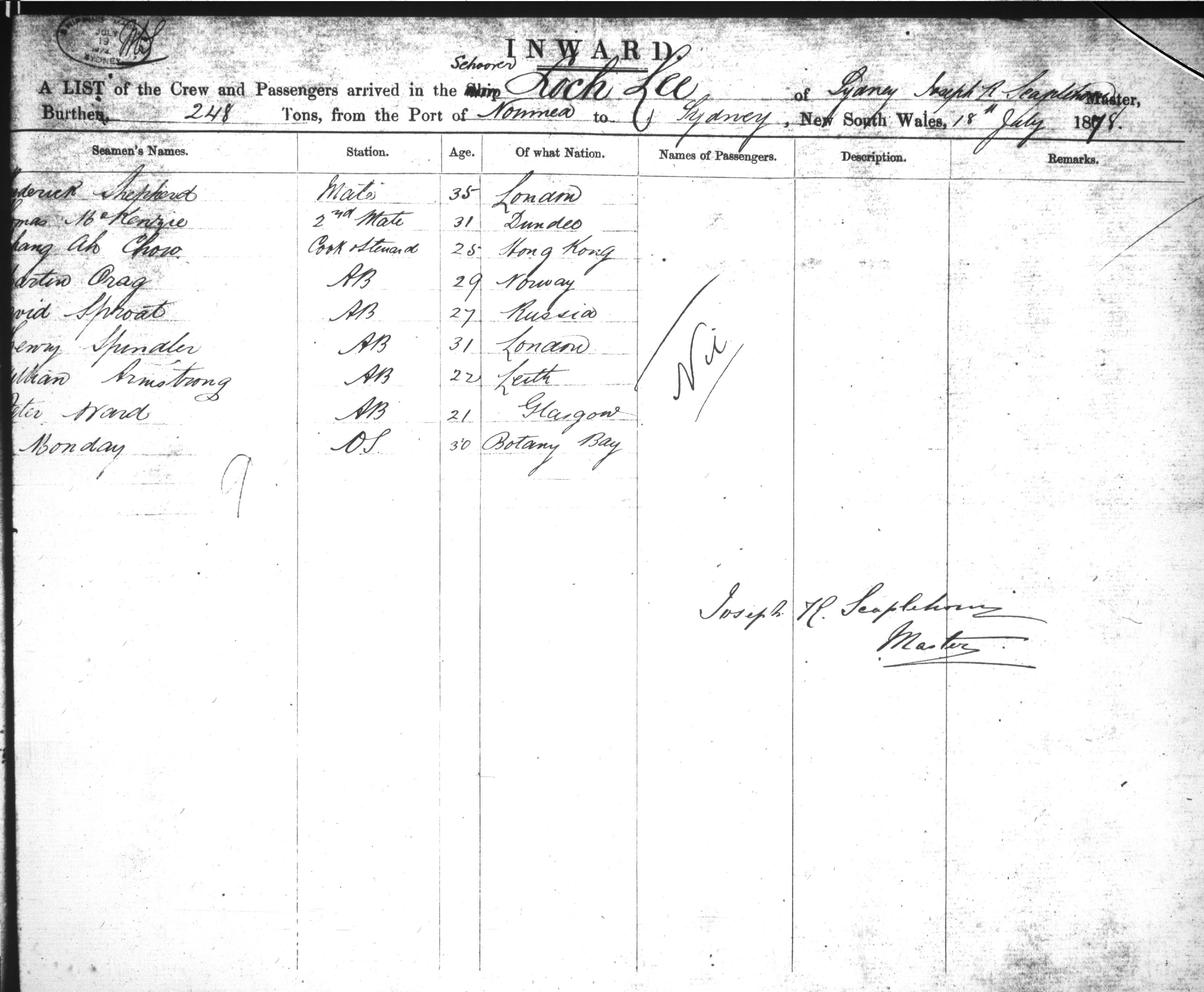 JULY
19
SYDNEY
INWARD.
Schooner
A LIST of the Crew and Passengers arrived in the Ship Loch Lee of Sydney Joseph R Seaplehorn Master,
Burthen, 248 Tons, from the Port of Noumea to Sydney, New South Wales, 18th July 1878.
Seamen's Names. Station. Age. Of what Nation. Names of Passengers. Description. Remarks.
ederick Shepherd Mate 35 London
omas McKenzie 2nd Mate 31 Dundee
hang Ah Chow. Cook & Steward 25 Hong Kong
artin Orag AB 29 Norway
avid Sproat AB 27 Russia
enry Spindler AB 31 London
illian Armstrong AB 22 Leith
eter Ward AB 21 Glasgow
Monday OS. 30 Botany Bay
Nil
9
Joseph R. Seaplehorn
Master